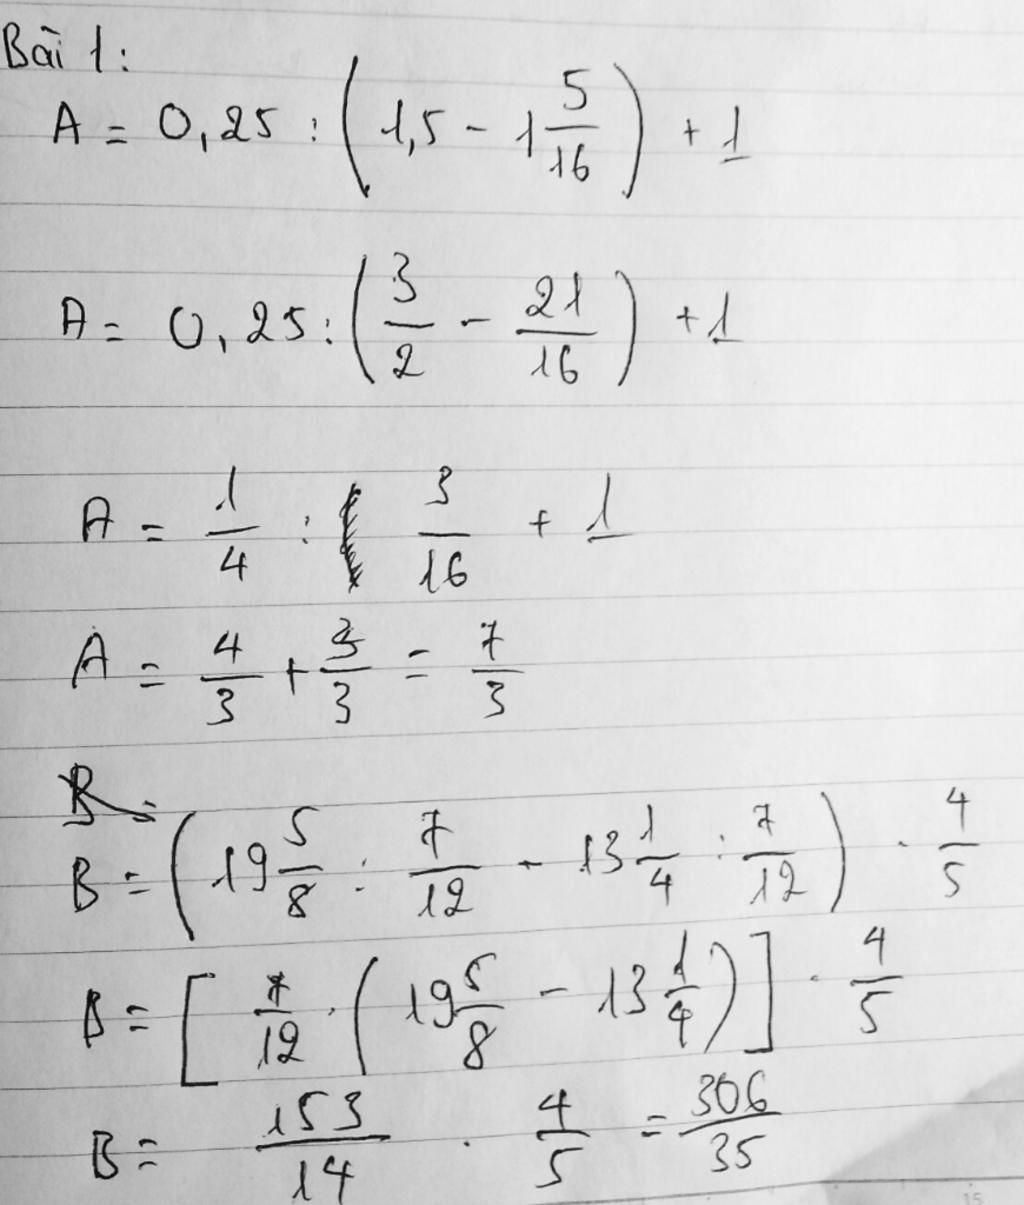 Bài 1:
A = 0,25 : (1,5 - 1 5/16) + 1
A = 0,25 : (3/2 - 21/16) + 1
A = 1/4 : 3/16 + 1
A = 4/3 + 3/3 = 7/3
B = (19 5/8 : 7/12 - 13 1/4 : 7/12) . 4/5
B = [7/12 . (19 5/8 - 13 1/4)] . 4/5
B = 153/14 . 4/5 = 306/35
15